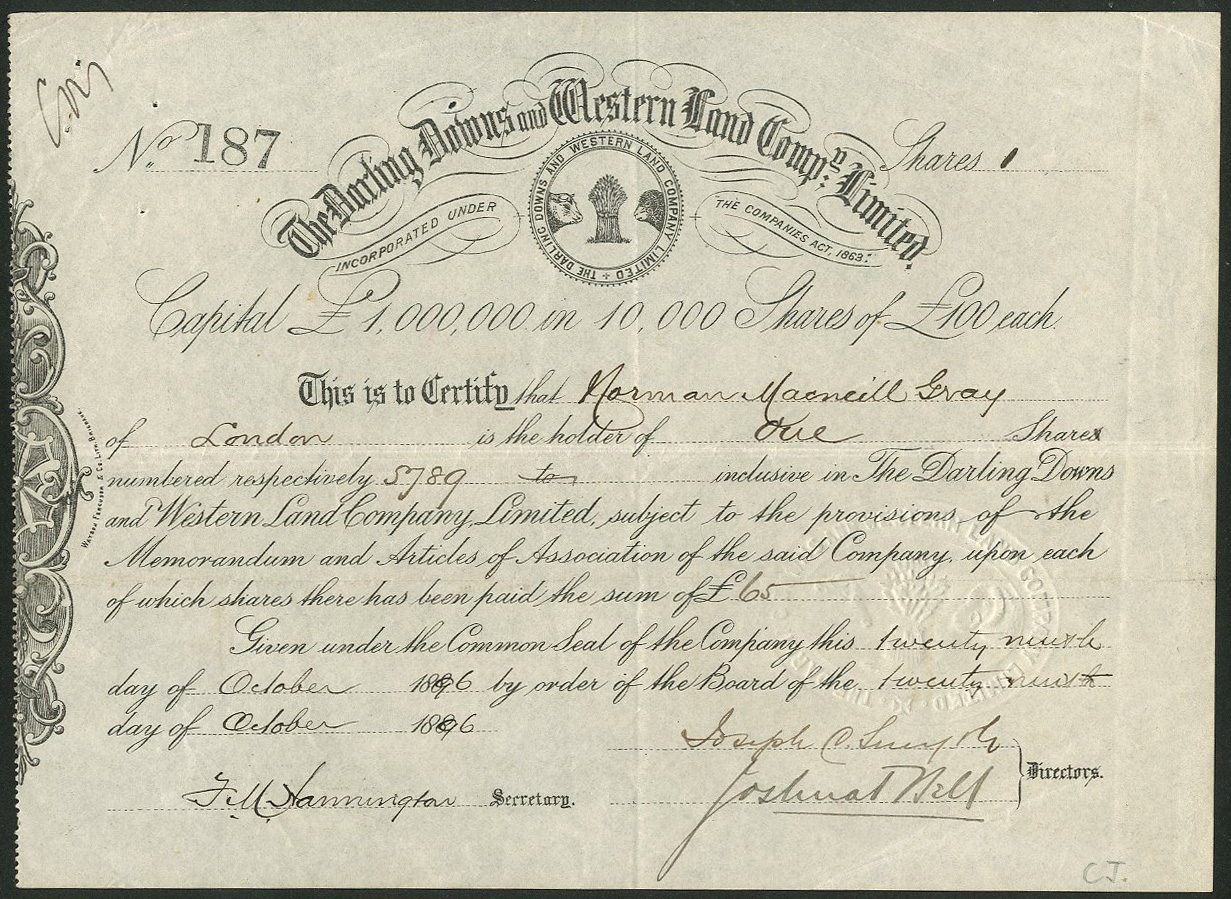 No. 187
The Darling Downs and Western Land Compy: Limited.
Shares 1
INCORPORATED UNDER
THE COMPANIES ACT, 1863:
THE DARLING DOWNS AND WESTERN LAND COMPANY LIMITED
Capital £1,000,000 in 10,000 Shares of £100 each.
This is to Certify that Norman Macneill Gray
of London is the holder of One Share
numbered respectively 5789 to inclusive in The Darling Downs
and Western Land Company, Limited, subject to the provisions of the
Memorandum and Articles of Association of the said Company, upon each
of which shares there has been paid the sum of £65
Given under the Common Seal of the Company this twenty ninth
day of October 1896 by order of the Board of the twenty ninth
day of October 1896
Joseph C. Smyth
Joshua T Bell
Directors.
F. M. Hannington Secretary.
C.J.